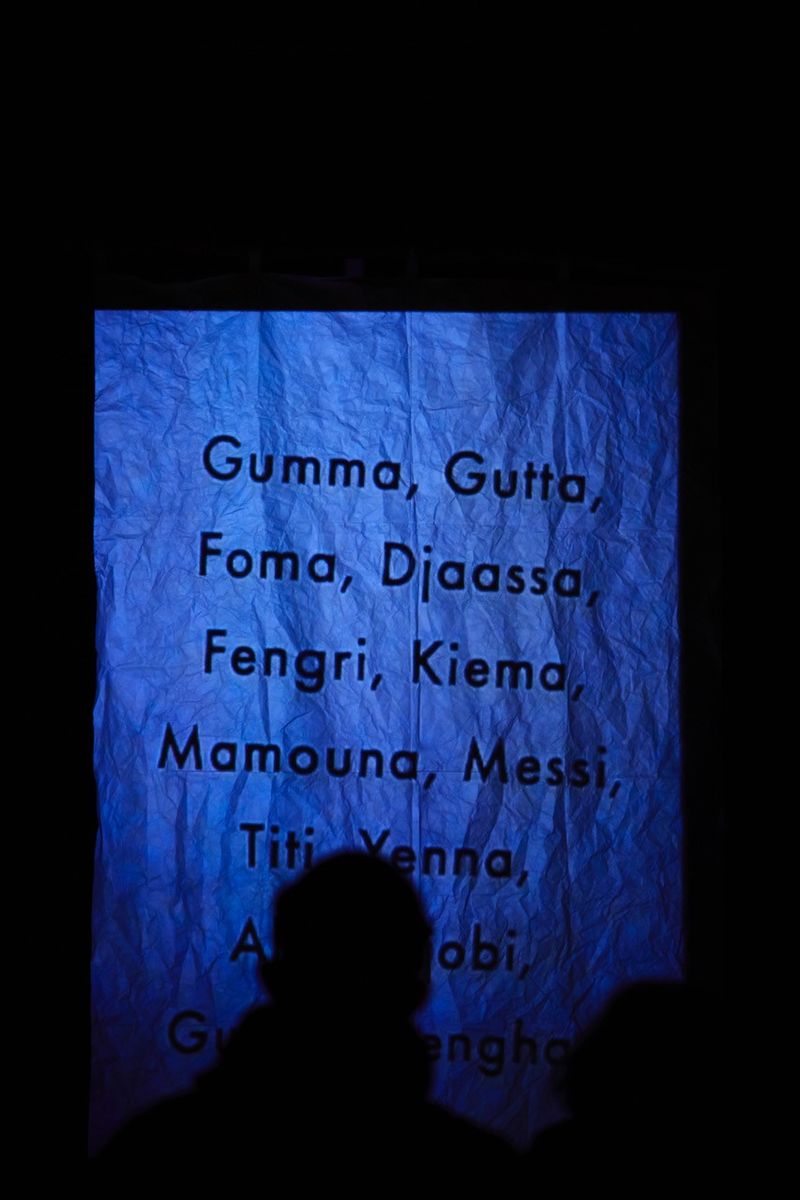 Gumma, Gutta,
Foma, Djaassa,
Fengri, Kiema,
Mamouna, Messi,
Titi, Yenna,